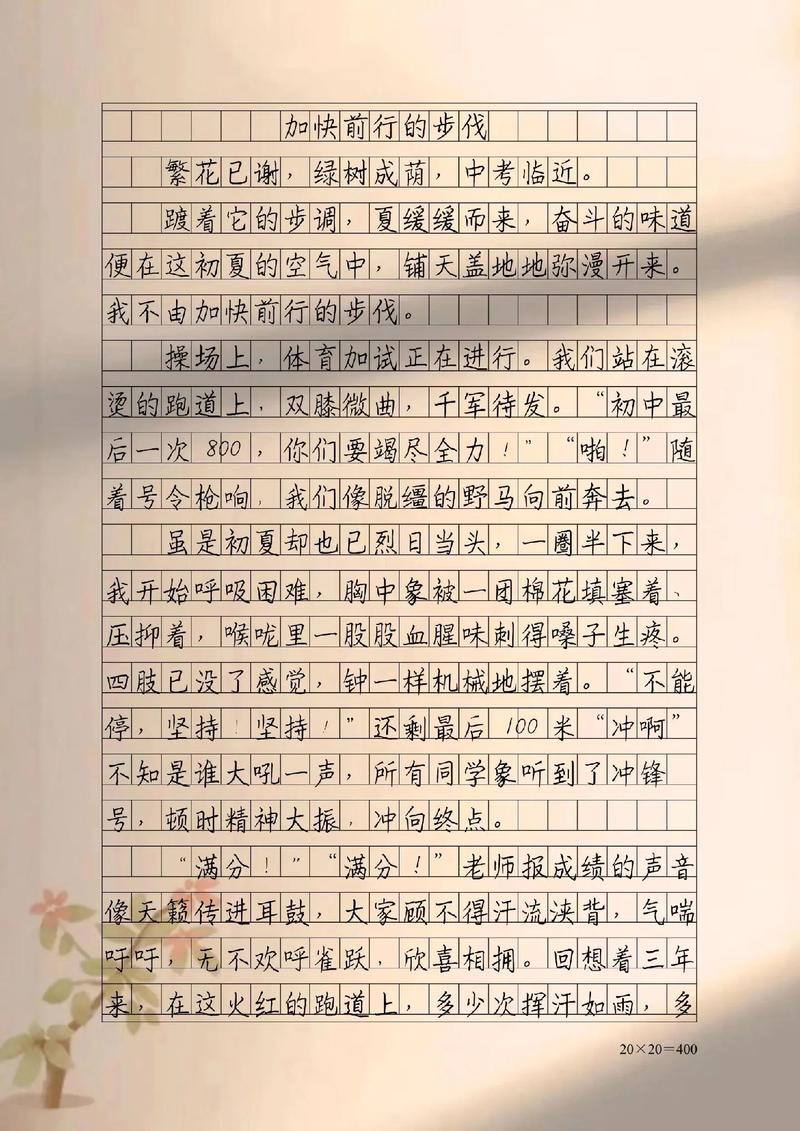 加快前行的步伐
繁花已谢，绿树成荫，中考临近。
踱着它的步调，夏缓缓而来，奋斗的味道
便在这初夏的空气中，铺天盖地地弥漫开来。
我不由加快前行的步伐。
操场上，体育加试正在进行。我们站在滚
烫的跑道上，双膝微曲，千军待发。“初中最
后一次800，你们要竭尽全力！”“啪！”随
着号令枪响，我们像脱缰的野马向前奔去。
虽是初夏却也已烈日当头，一圈半下来，
我开始呼吸困难，胸中象被一团棉花填塞着、
压抑着，喉咙里一股股血腥味刺得嗓子生疼。
四肢已没了感觉，钟一样机械地摆着。“不能
停，坚持！坚持！”还剩最后100米“冲啊”
不知是谁大吼一声，所有同学象听到了冲锋
号，顿时精神大振，冲向终点。
“满分！”“满分！”老师报成绩的声音
像天籁传进耳鼓，大家顾不得汗流浃背，气喘
吁吁，无不欢呼雀跃，欣喜相拥。回想着三年
来，在这火红的跑道上，多少次挥汗如雨，多
20×20=400